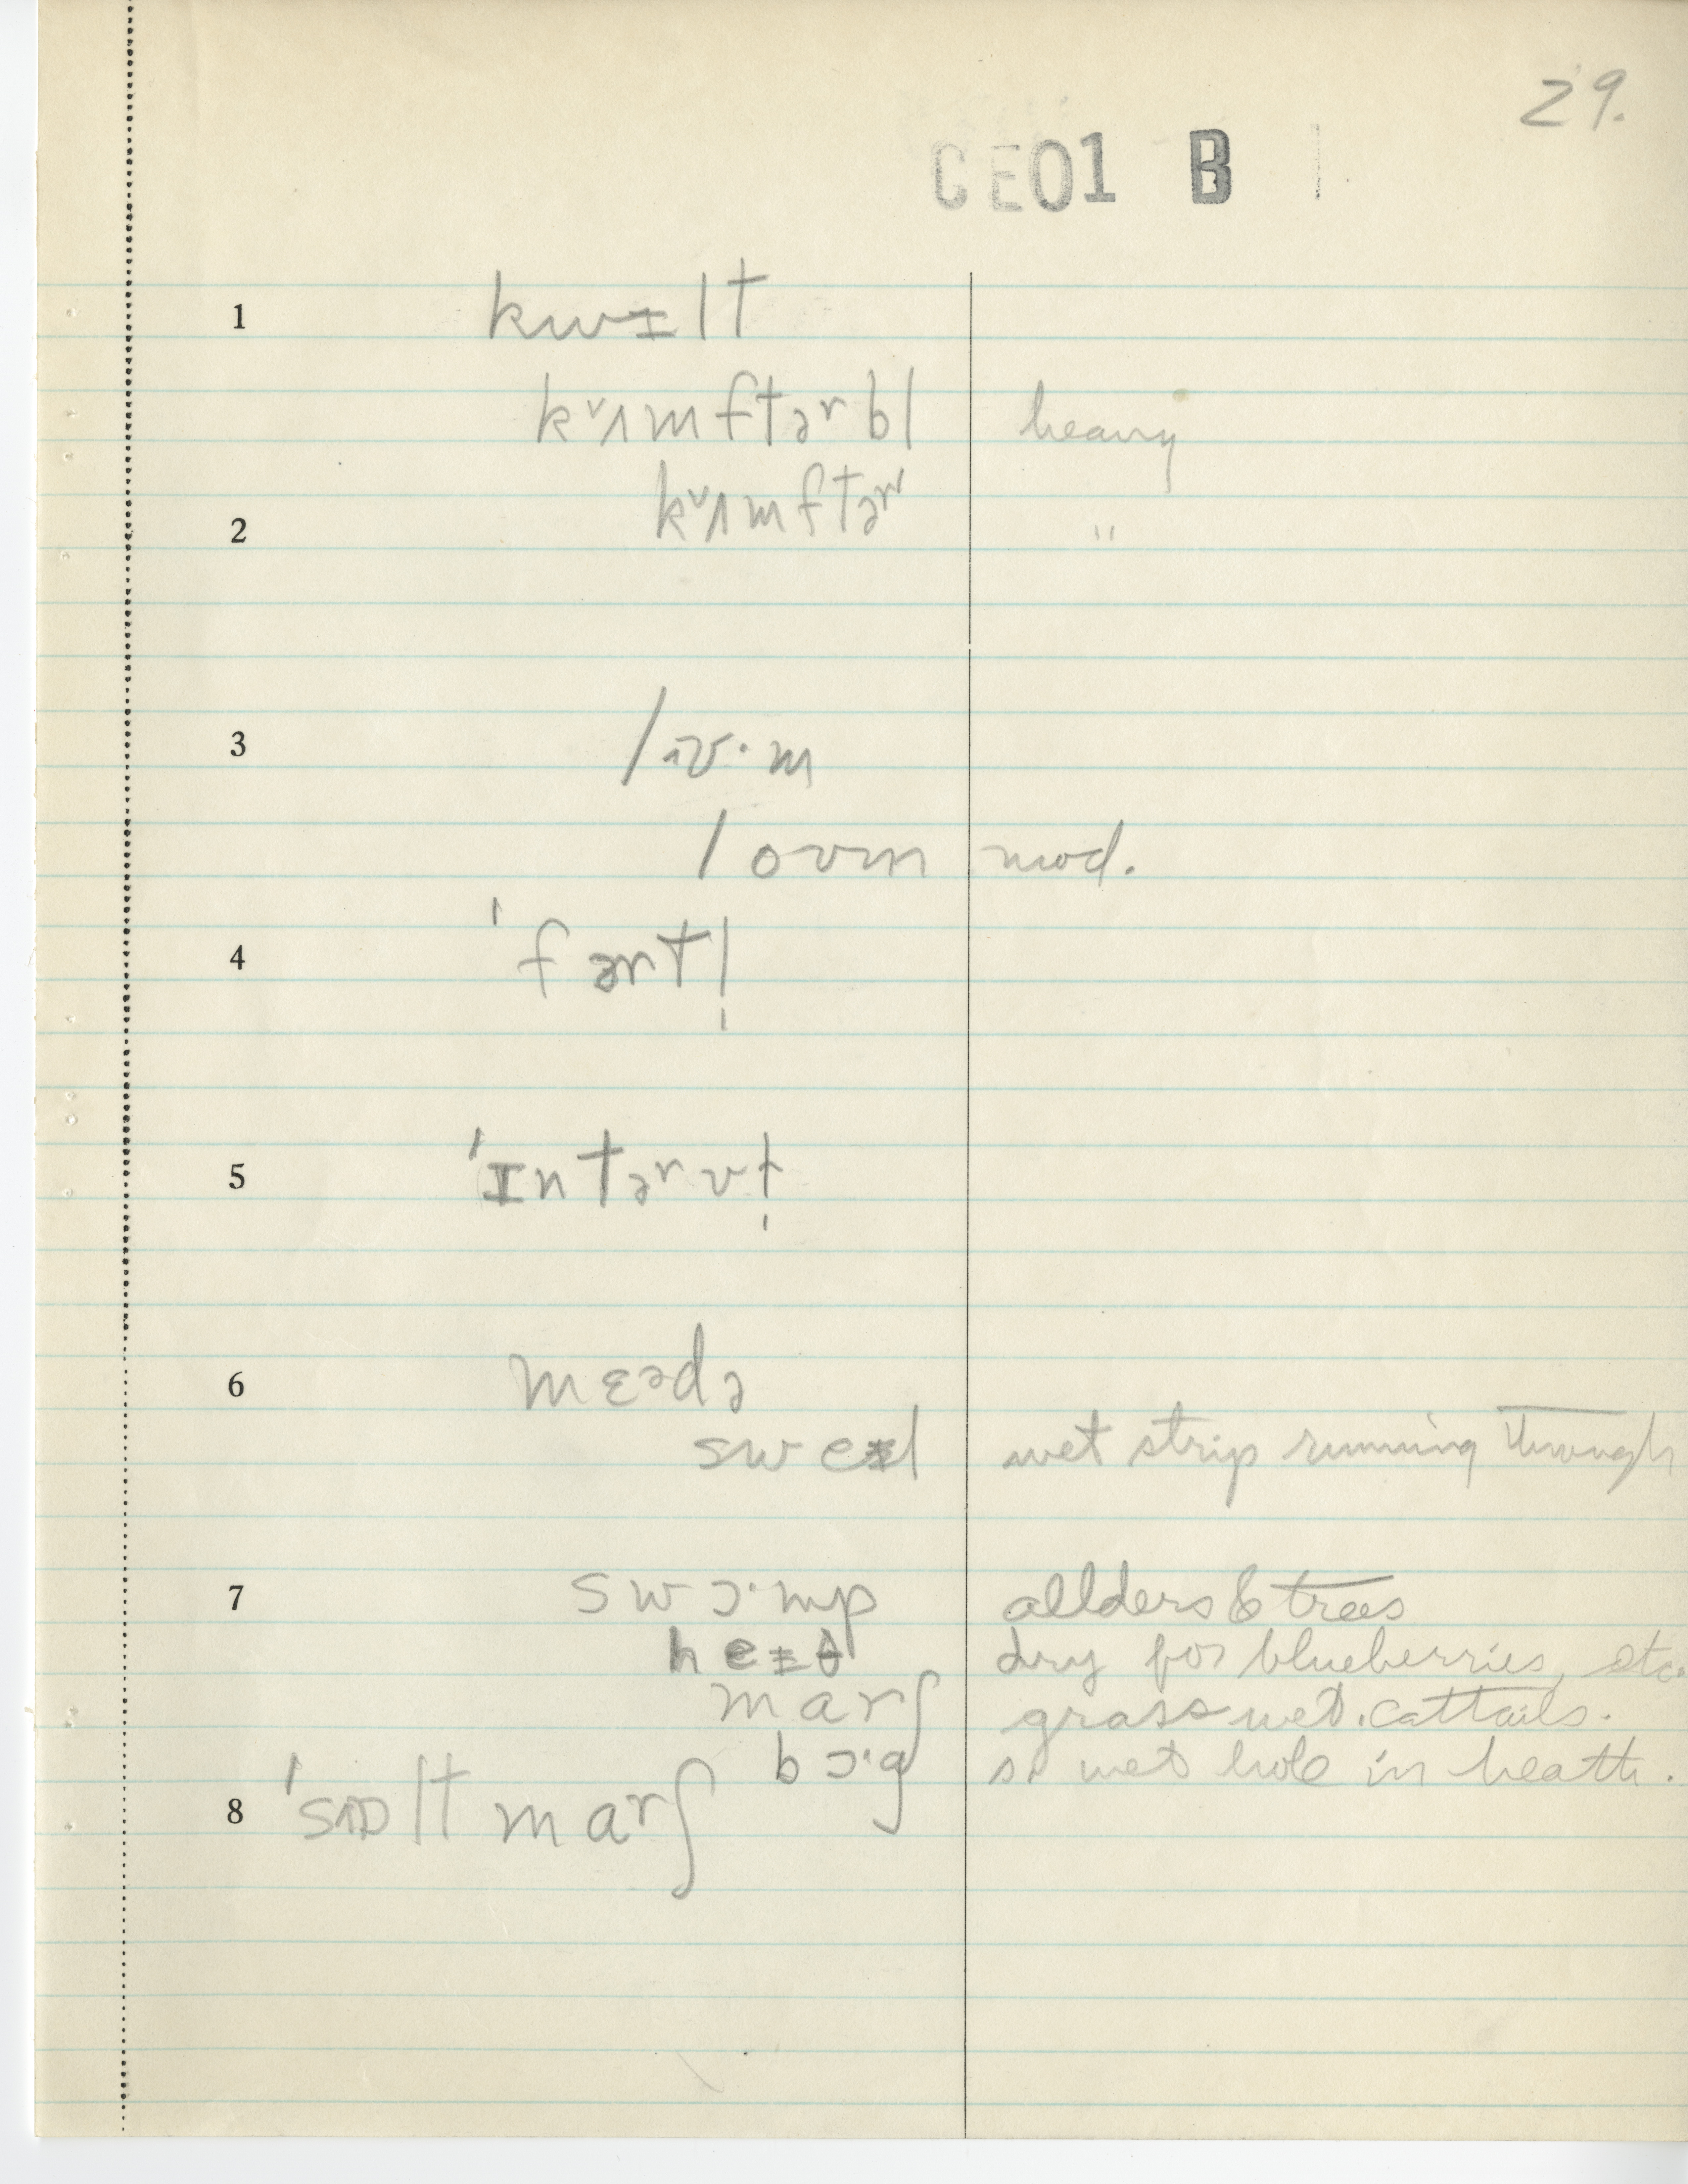 29.
CE01 B 1
1 kwɪlt
kᵛʌmftɚbl heavy
2 kᵛʌmftɚ "
3 lɪʊ·m
loʊm mod.
4 ˈfɚtl̩
5 ˈɪntɚvl̩
6 mɛədə
sweɪl wet strip running through
7 swɔ·mp allders & trees
heɪθ dry for blueberries, etc.
marʃ grass wet. cattails.
bɔ·g wet hole in heath.
8 ˈsɒlt marʃ